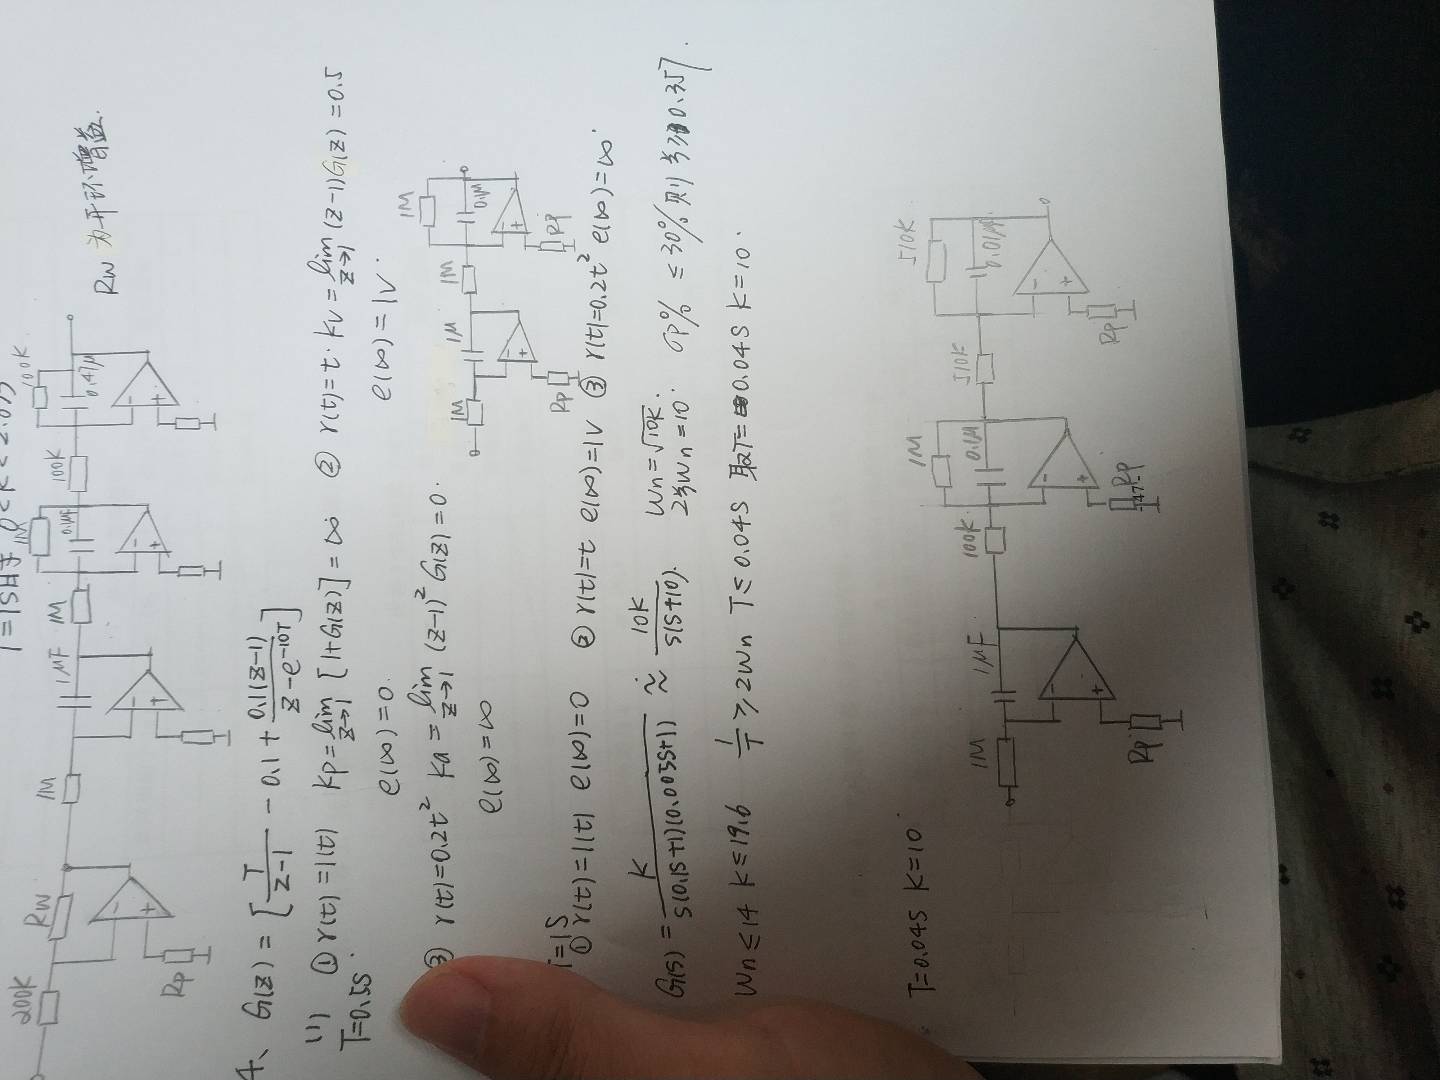 T=1S时 0<K<2.075
200K Rw 1M 1μF 1M 1M 0.1μF 100K 100K 0.47μ
Rp
Rw 为开环增益.
4、 G(z) = [T/(z-1) - 0.1 + 0.1(z-1)/(z-e^-10T)]
(1) ① r(t)=1(t) Kp=lim z→1 [1+G(z)]=∞ ② r(t)=t. Kv=lim z→1 (z-1)G(z)=0.5
T=0.5S
e(∞)=0. e(∞)=1V.
③ r(t)=0.2t² Ka=lim z→1 (z-1)² G(z)=0.
e(∞)=∞
1M 1μ 1M 1M 0.1μ
Rp Rp
T=1S
① r(t)=1(t) e(∞)=0 ② r(t)=t e(∞)=1V ③ r(t)=0.2t² e(∞)=∞
G(s)=K/(s(0.1s+1)(0.005s+1)) ≈ 10K/(s(s+10)). Wn=√10K. 2ξWn=10. σp% ≤30% 则 ξ≥0.357.
Wn≤14 K≤19.6 1/T ≥2Wn T≤0.04S 取T=0.04S K=10.
T=0.04S K=10
1M 1μF 100K 1M 0.1μ 510K 510K 0.01μF
Rp Rp Rp
- 47 -